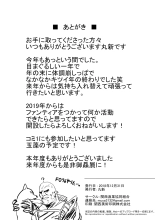 ■ あとがき ■
お手に取ってくださった方々
いつもありがとうございます丸新です
今年もあっという間でした。
目まぐるしい一年で
年の末に体調崩しっぱで
なかなかキツイ年の終わりでした笑
来年からは気持ち入れ替えて頑張って
行きたいと思います。
2019年からは
ファンティアをつかって何か活動
できたらと思ってますので
開設したらよろしくおねがいします!
コミ1にも参加したいと思ってます
玉藻の予定です!
本年度もありがとうございました
来年度からも是非御贔屓に!